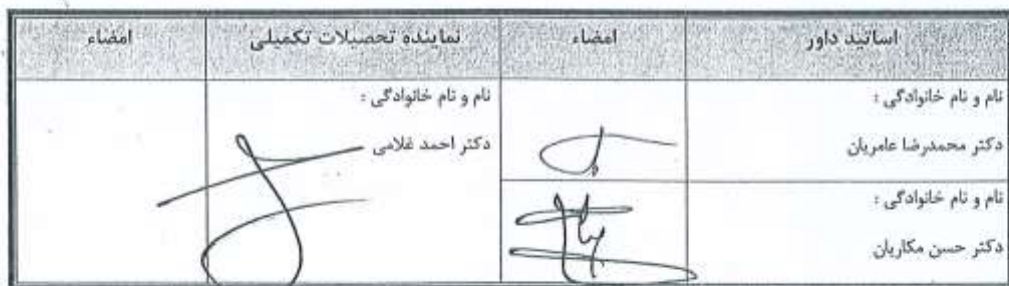 اساتید داور
امضاء
نماینده تحصیلات تکمیلی
امضاء
نام و نام خانوادگی :
دکتر محمدرضا عامریان
نام و نام خانوادگی :
دکتر احمد غلامی
نام و نام خانوادگی :
دکتر حسن مکاریان